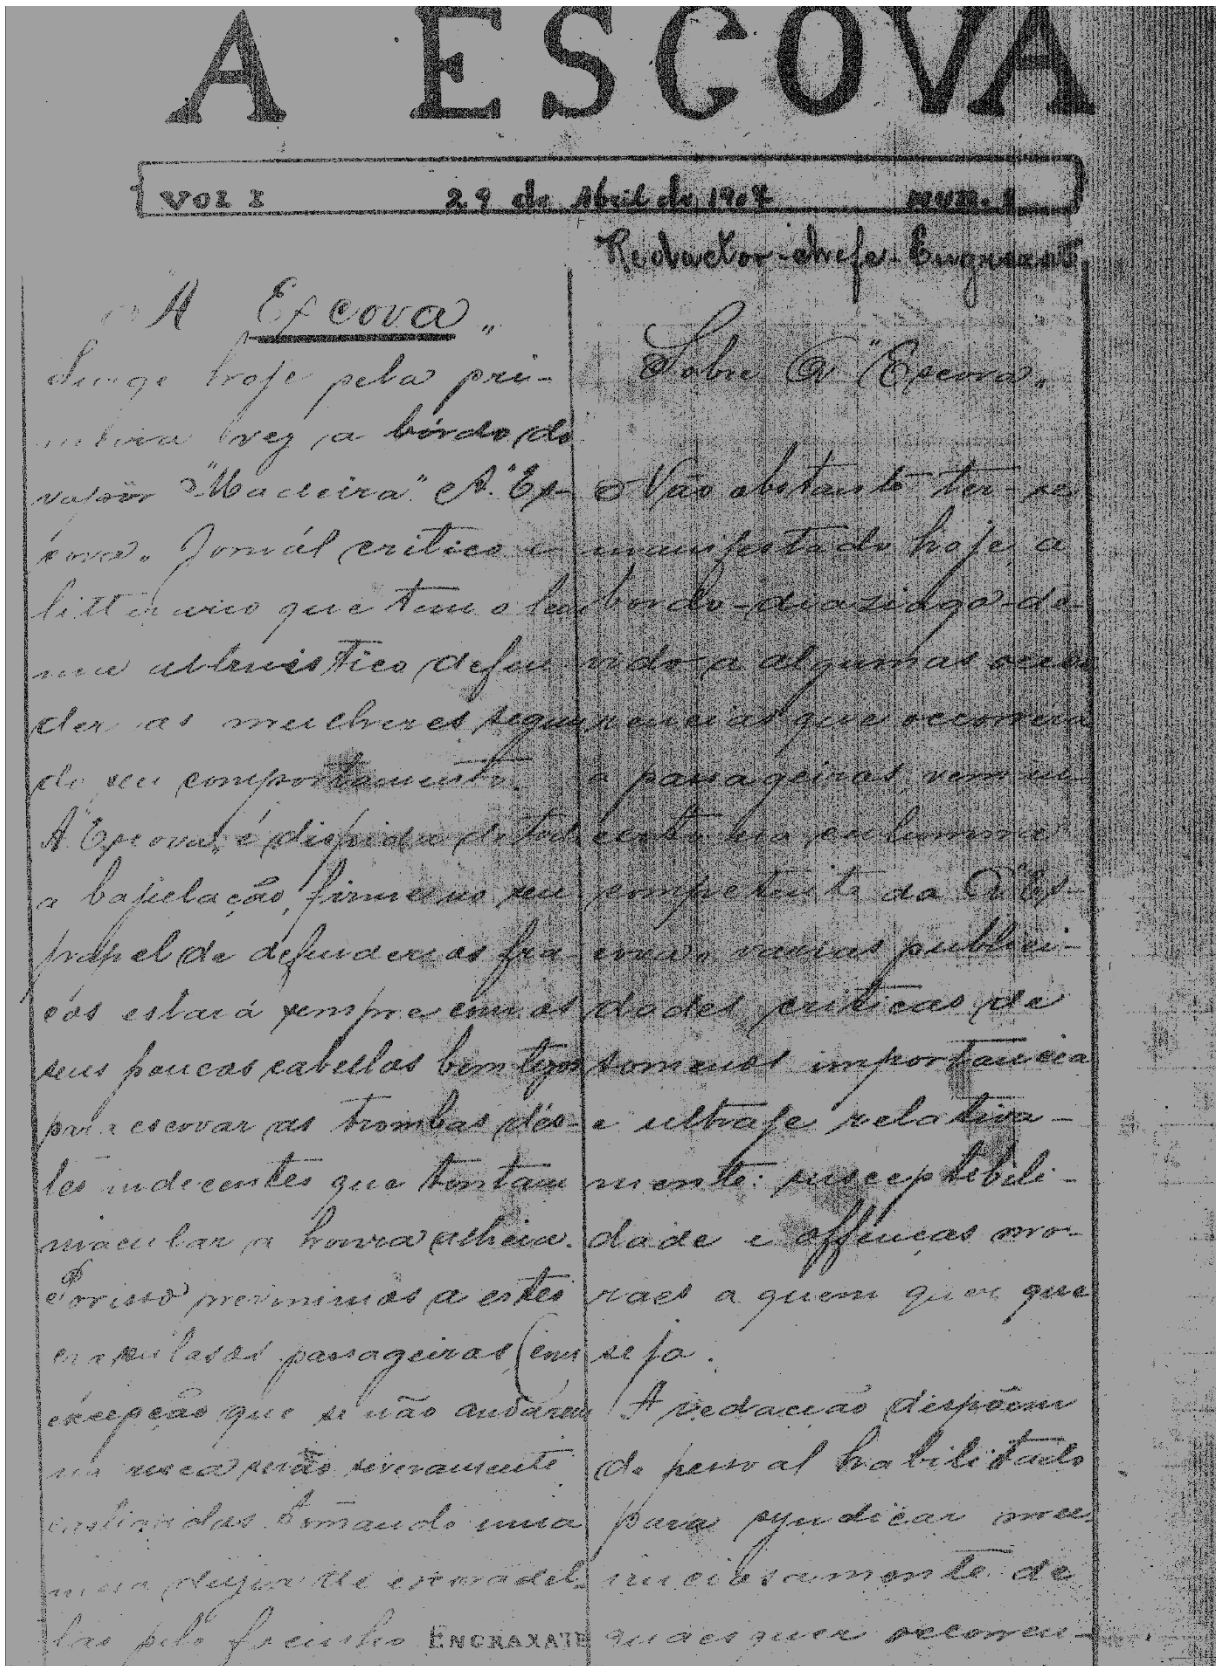 A ESCOVA
VOL I 29 de Abril de 1907 NUM. 1
Redactor-chefe-Engraxate
"A Escova"
Surge hoje pela pri-
meira vez a bórdo do
vapôr "Madeira" A "Es-
cova" Jornál critico e
litterario que tem o lem
ma altruistico defen
der as mulheres segun
do seu comportamento.
A "Escova" é dispida de toda
a bajulação, firme no seu
papel de defender os fra-
cos estará sempre com os
seus poucos cabellos bem tezos
para escovar as trombas dés-
tes indecentes que tentam
macular a honra alheia.
Porisso prevenimos a estes
crapulosos passageiros, (com
excepção que se não andarem
na risca serão severamente
castigados tomando uma
meia duzia de escovadel-
las pelo focinho ENGRAXATE
Sobre A "Escova"
Não obstante ter-se
manifestado hoje a
bordo-dia ziago-de-
vido a algumas occor
rencias que occorreram
a passageiros, vem in-
certo na culumna
competente da A "Es-
cova" varias publici-
dades criticas de
somenos importancia
e ultraje relativa-
mente: susceptibili-
dade e offenças mo-
raes a quem quer que
seja.
A redacção dispõem
de pessoal habilitado
para syndicar mi-
nuciosamente de
quaesquer occorren-